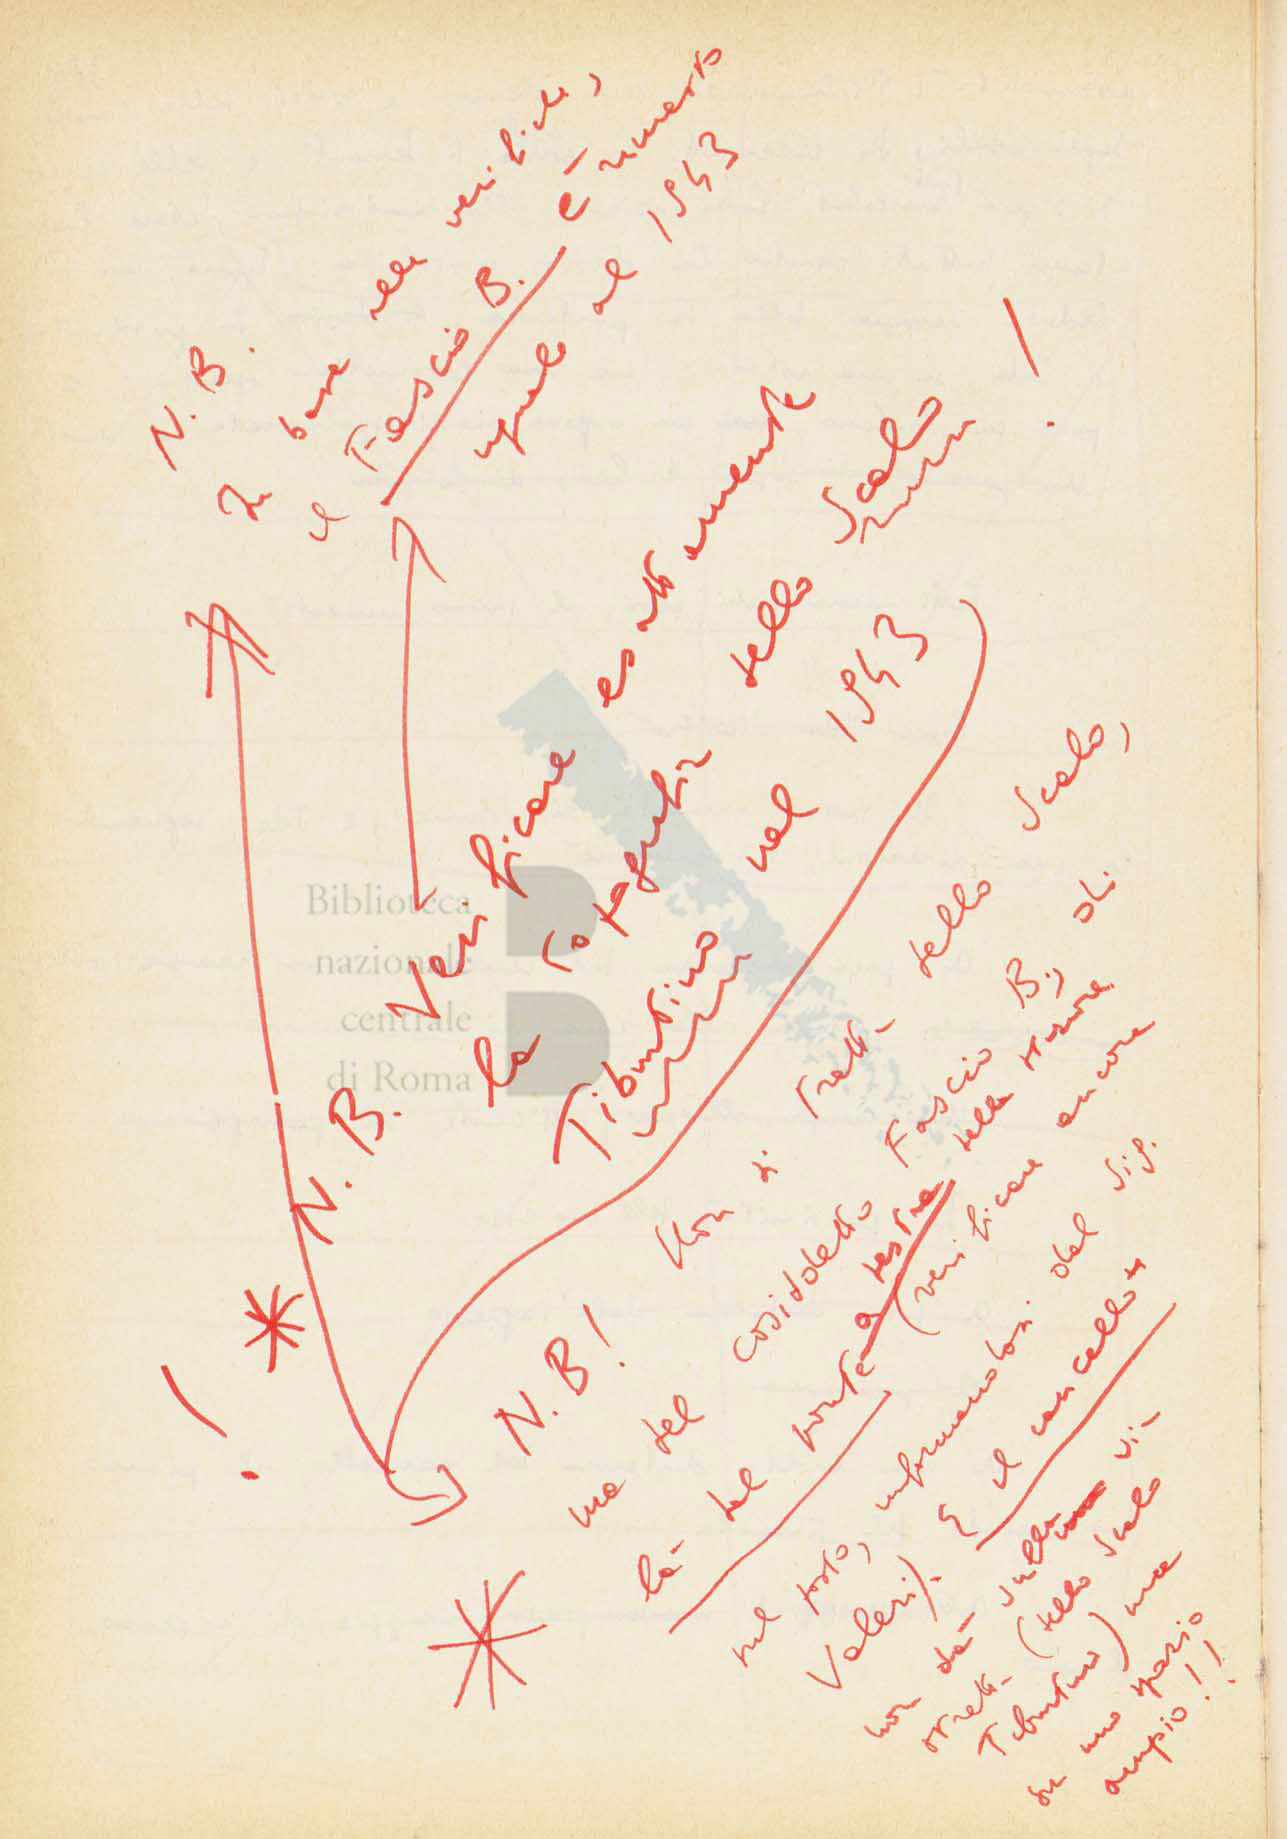 N.B.
In base alle verifiche,
il Fascio B. è rimasto
uguale al 1943
N.B. Verificare esattamente
la topografia dello Scalo
Tiburtino nel 1943
!
N.B! Non si tratta dello Scalo,
ma del cosiddetto Fascio B., di
là del ponte a destra della stazione
(verificare ancora
sul posto, informandosi dal sig.
Valeri). E il cancello
non dà sulla vi-
(dello Scalo
Tiburtino) ma
su uno spazio
ampio!!
!
Biblioteca
nazionale
centrale
di Roma